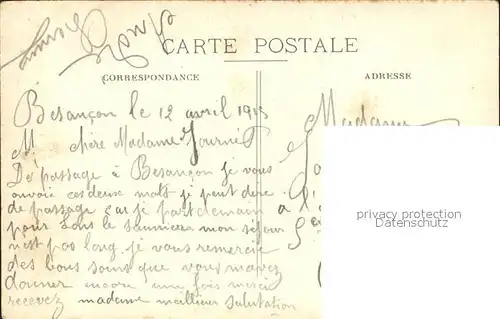 CARTE POSTALE
CORRESPONDANCE
ADRESSE
Besançon le 12 avril 1915
Madame
M chère Madame Journet
De passage à Besançon je vous
envoie ces deux mots je peut dire
de passage car je part demain a
pour Lons le Saunier mon séjour
n'est pas long je vous remercie
des bons soins que vous mavez
donner encore une fois merci
recevez madame meilleur salutation
privacy protection
Datenschutz